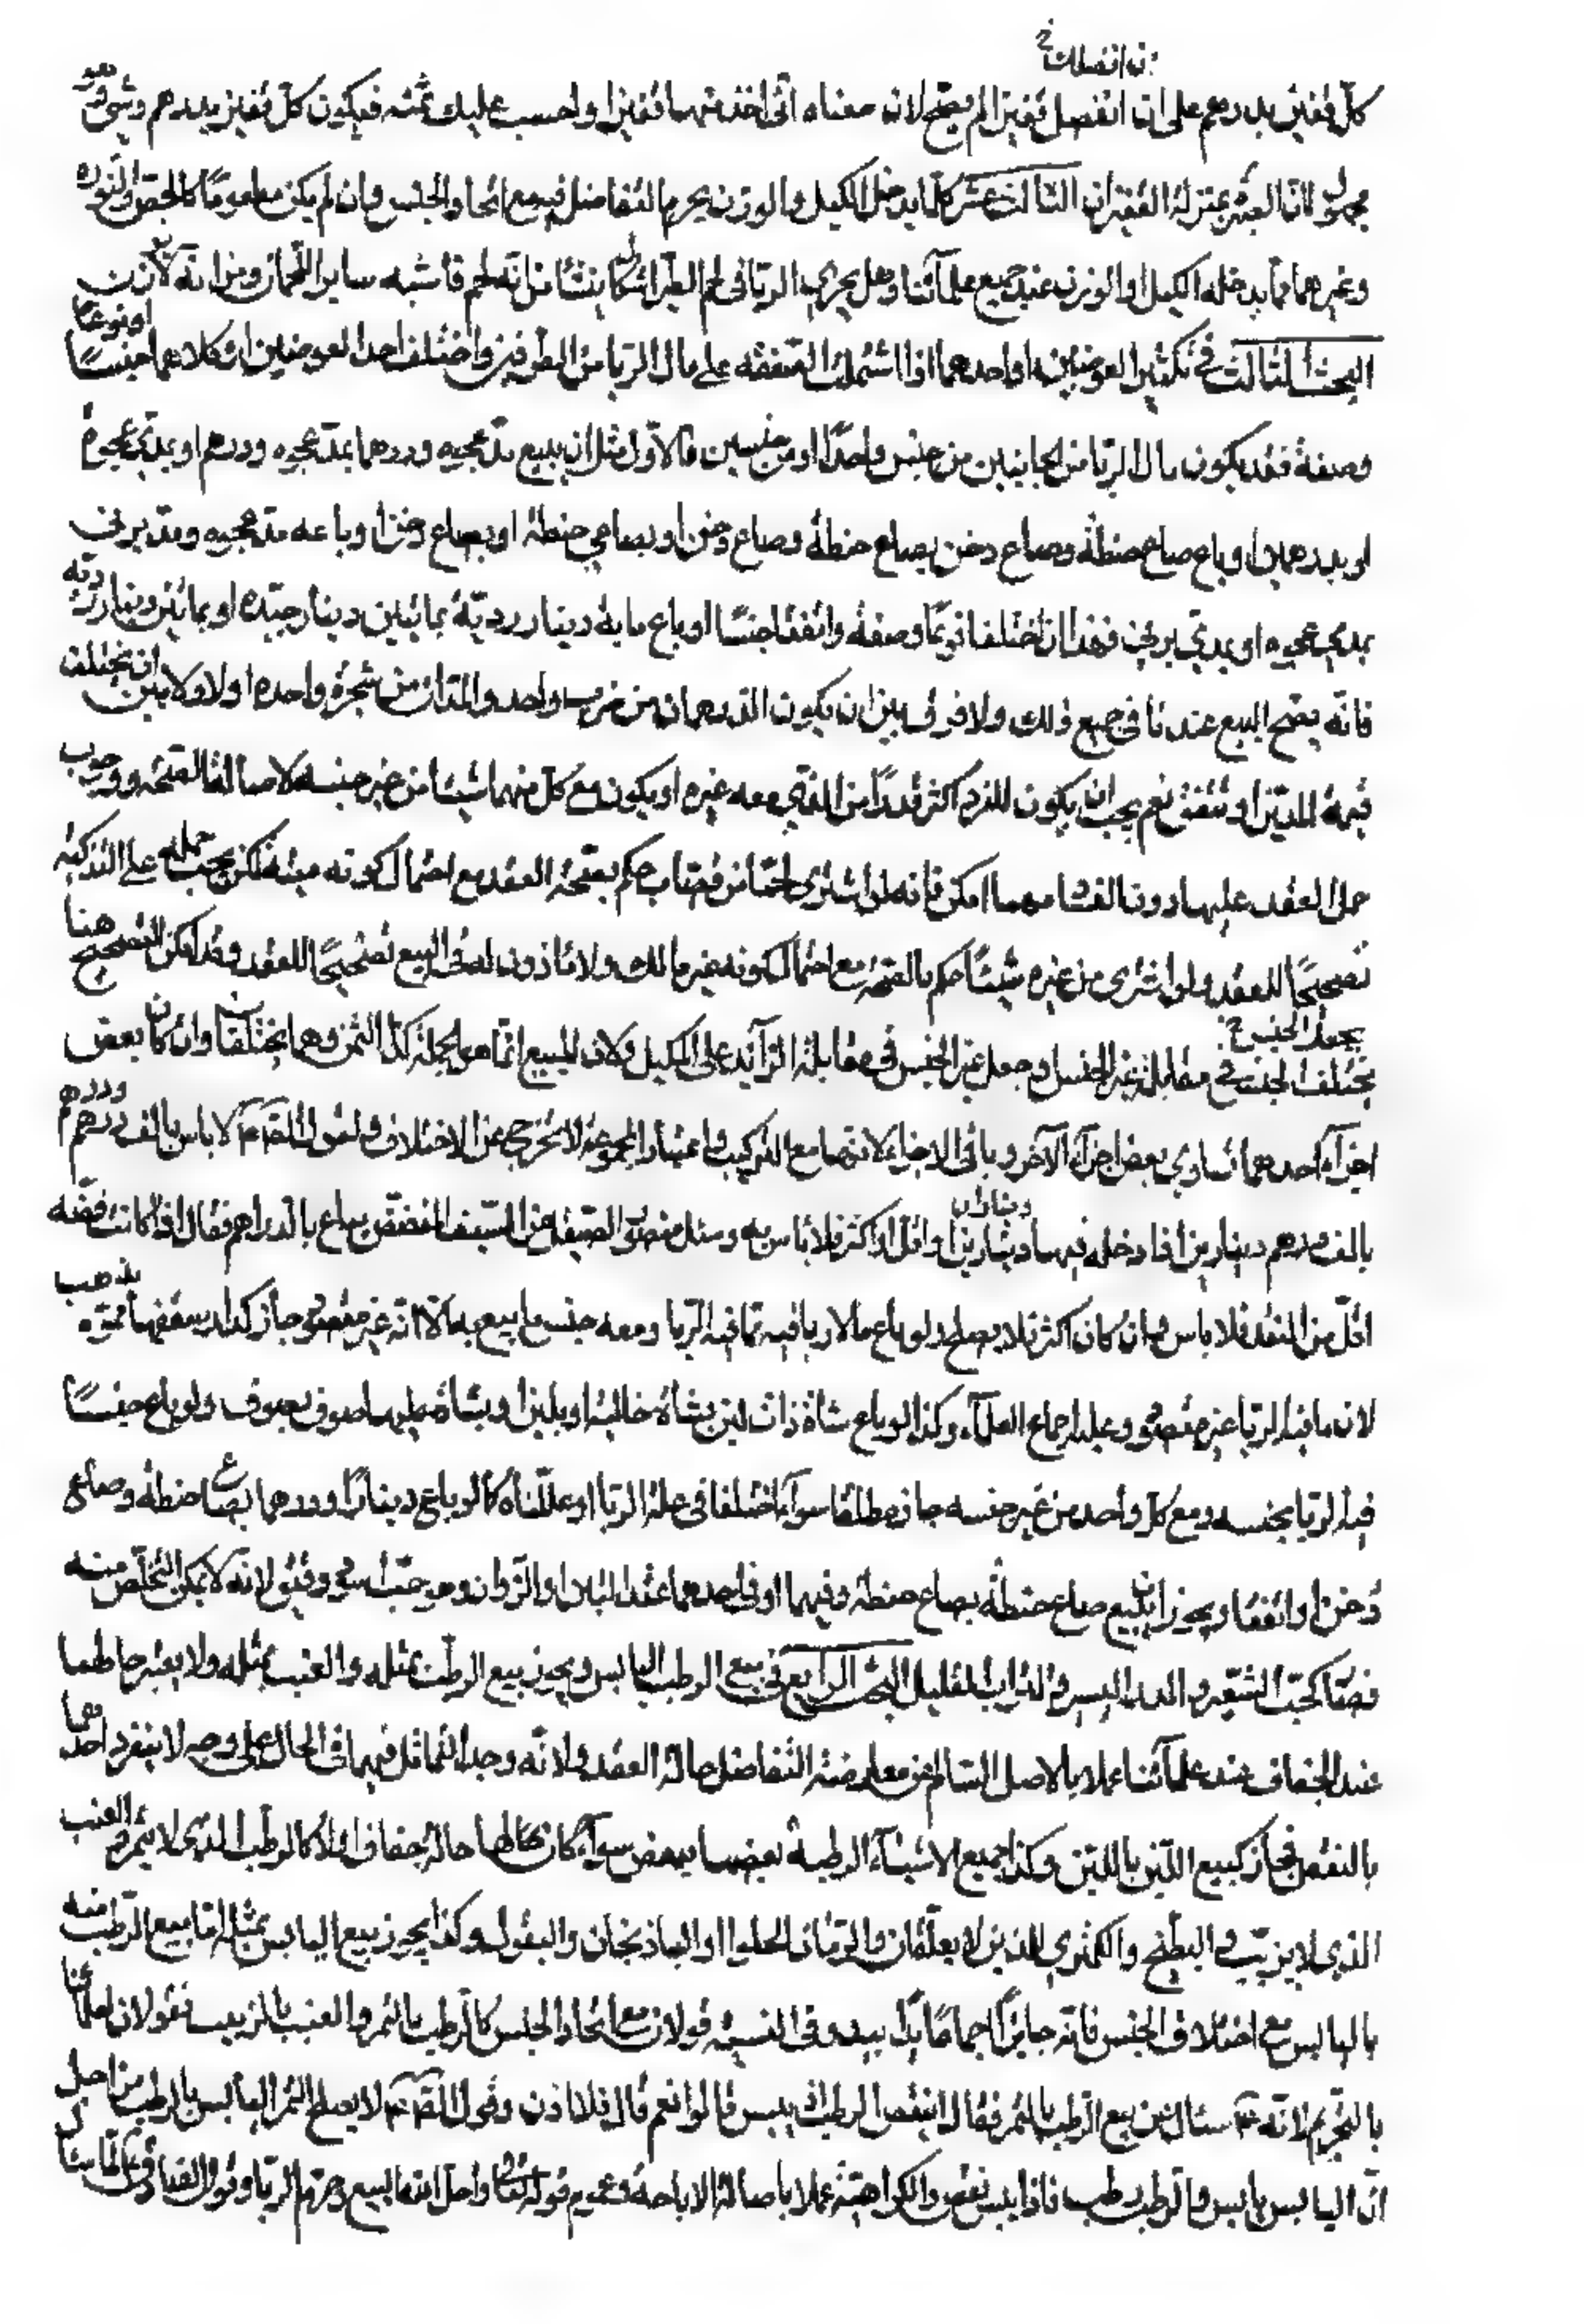 ان انقصك خ
كلّ قفيز بدرهم على ان انقصك قفيزا لم يصحّ لان معناه انّى اخذ منها قفيزا واحسب عليك ثمنه فيكون كلّ قفيز بدرهم وشئ وهو
مجهول لانّا لم نعتبر القفزان الثالث عشر كلّما يدخل الكيل والوزن يحرم التفاضل فيه مع اتّحاد الجنس وان لم يكن مطعومًا كالجصّ والنوره
وغيرهما ممّا يدخله الكيل او الوزن عند جميع علمآئنا وهل يجرى الربا فى لحم الطير اشكال ينشأ من انّه لحم فاشبه ساير اللحمان ومن انّه لا يوزن
البحث الثالث فى تكثير العوضين او احدهما اذا اشتملت الصفقة على مال الربا من الطرفين واختلف احد العوضين او كلاهما جنسًا او نوعًا
وصفة فقد يكون مال الربا من الجانبين من جنس واحد او من جنسين فالاوّل مثل ان يبيع مدّ عجوه ودرهما بمدّ عجوه ودرهم او بمدّى عجوة
او بدرهمين او باع صاع حنطة وصاع دخن بصاع حنطة وصاع دخن او بصاعى حنطة او بصاعى دخن او باعه مدّ عجوه ومدّ برنى
بمدّى عجوه او بمدّى برنى فهذان اختلفا نوعًا وصفة واتّفقا جنسًا او باع مائة دينار رديّة بمائتين دينار جيّده او بمائتين دينار رديّه
فانّه يصحّ البيع عندنا فى جميع ذلك ولا فرق بين ان يكون الدرهمان من ضرب واحد والمدّان من شجرة واحده اولا ولا بين ان تختلف
قيمة المدّين او تتّفق نعم يجب ان يكون المفرد اكثر قدرًا من الذى معه غيره او يكون مع كلّ منهما شيئا من غير جنسه لاصالة الصحّه ووجوب
حمل العقد عليها دون الفساد مهما امكن فانّه لو اشترى لحمًا من قصّاب حكم بصحّة العقد مع احتمال كونه ميتة لكن يجب حمله على التذكية
تصحيحًا للعقد ولو اشترى من غيره شيئًا حكم بالصحّة مع احتمال كونه غير مالك ولا ماذون له فى البيع تصحيحًا للعقد وقد امكن التصحيح هنا
بجعل الجنس خ
بمختلف الجنس فى مقابلة غير الجنس وجعل غير الجنس فى مقابلة الزآئد على المكيل ولان المبيع انّما هو الجملة وكذا الثمن وهما مختلفان وان كان بعض
اجزآء احدهما تساوى بعض اجزآء الآخر وباقى الاجزاء لانّهما مع التركيب واعتبار المجموع لا تخرج عن الاختلاف ولقول الصادق ع لا باس بالف درهم ودرهم
دينارين
بالف درهم ودينارين اذا دخله فيها ديناران او اقل او اكثر فلا باس به وسئل منصور الصيقل عن السيف المفضّض يباع بالدراهم فقال اذا كانت فضّه
اقلّ من النقد فلا باس وان كان اكثر فلا يصلح ولو باع ما لا ربا فيه بما فيه الربا ومعه جنس ما بيع به الا انّه غير مقصود جاز كدار سقفها مموّه بذهب
لان ما فيه الربا غير مقصود وعليه اجماع العلمآء وكذا لو باع شاة ذات لبن بشاة خالية او بلبن او بشاة عليها صوف بصوف ولو باع جنسًا
فيه الربا بجنسه ومع كلّ واحد من غير جنسه جاز مطلقا سوآء اختلفا فى علّة الربا او علّتاه كما لو باع دينارًا ودرهما بصاع حنطة وصاع
دخن او اتّفقا ويجوز ان يبيع صاع حنطة بصاع حنطة وفيهما او فى احدهما عقد التبن او الزوان وهو حبّ اسود دقيق لانّه لا يمكن التخلّص منه
فصار كحبّ الشعير والمدر اليسير والتراب القليل البحث الرابع فى بيع الرطب باليابس ويجوز بيع الرطب بمثله والعنب بمثله ولا يعتبر حالهما
عند الجفاف عند علمآئنا عملا بالاصل السالم عن معارضة التفاضل حالة العقد ولانّه وجد التماثل فيهما فى الحال على وجه لا ينفرد احدهما
بالنقص فجاز كبيع اللبن باللبن وكذا جميع الاشيآء الرطبة بعضها ببعض سوآء كان لها حالة جفاف او لا كالرطب الذى لا يتمّر والعنب
الذى لا يزبّب والبطّيخ والكمثرى اللذين لا يعلّقان والرمّان الحلو او الباذنجان والبقول وكذا يجوز بيع اليابس بمثله امّا بيع الرطب منه
باليابس مع اختلاف الجنس فانّه جايز اجماعًا يدًا بيد وفى النسيئة قولان مع اتّحاد الجنس كالرطب بالتمر والعنب بالزبيب فقولان لعلمآئنا
بالتحريم لانّه ع سئل عن بيع الرطب بالتمر فقال اينقص الرطب اذا يبس قالوا نعم قال فلا اذن وقول الصادق ع لا يصلح التمر اليابس بالرطب من اجل
انّ اليابس يابس والرطب رطب فاذا يبس نقص والكراهية عملا باصالة الاباحة وعموم قوله تعالى واحل الله البيع وحرّم الربا وقول الصادق ع لمّا سئل